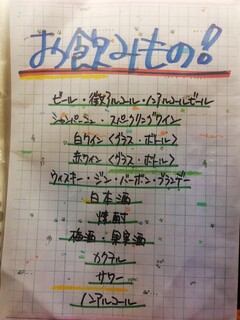 お飲みもの!
ビール・微アルコール・ノンアルコールビール
シャンパーニュ・スパークリングワイン
白ワイン〈グラス・ボトル〉
赤ワイン〈グラス・ボトル〉
ウィスキー・ジン・バーボン・ブランデー
日本酒
焼酎
梅酒・果実酒
カクテル
サワー
ノンアルコール